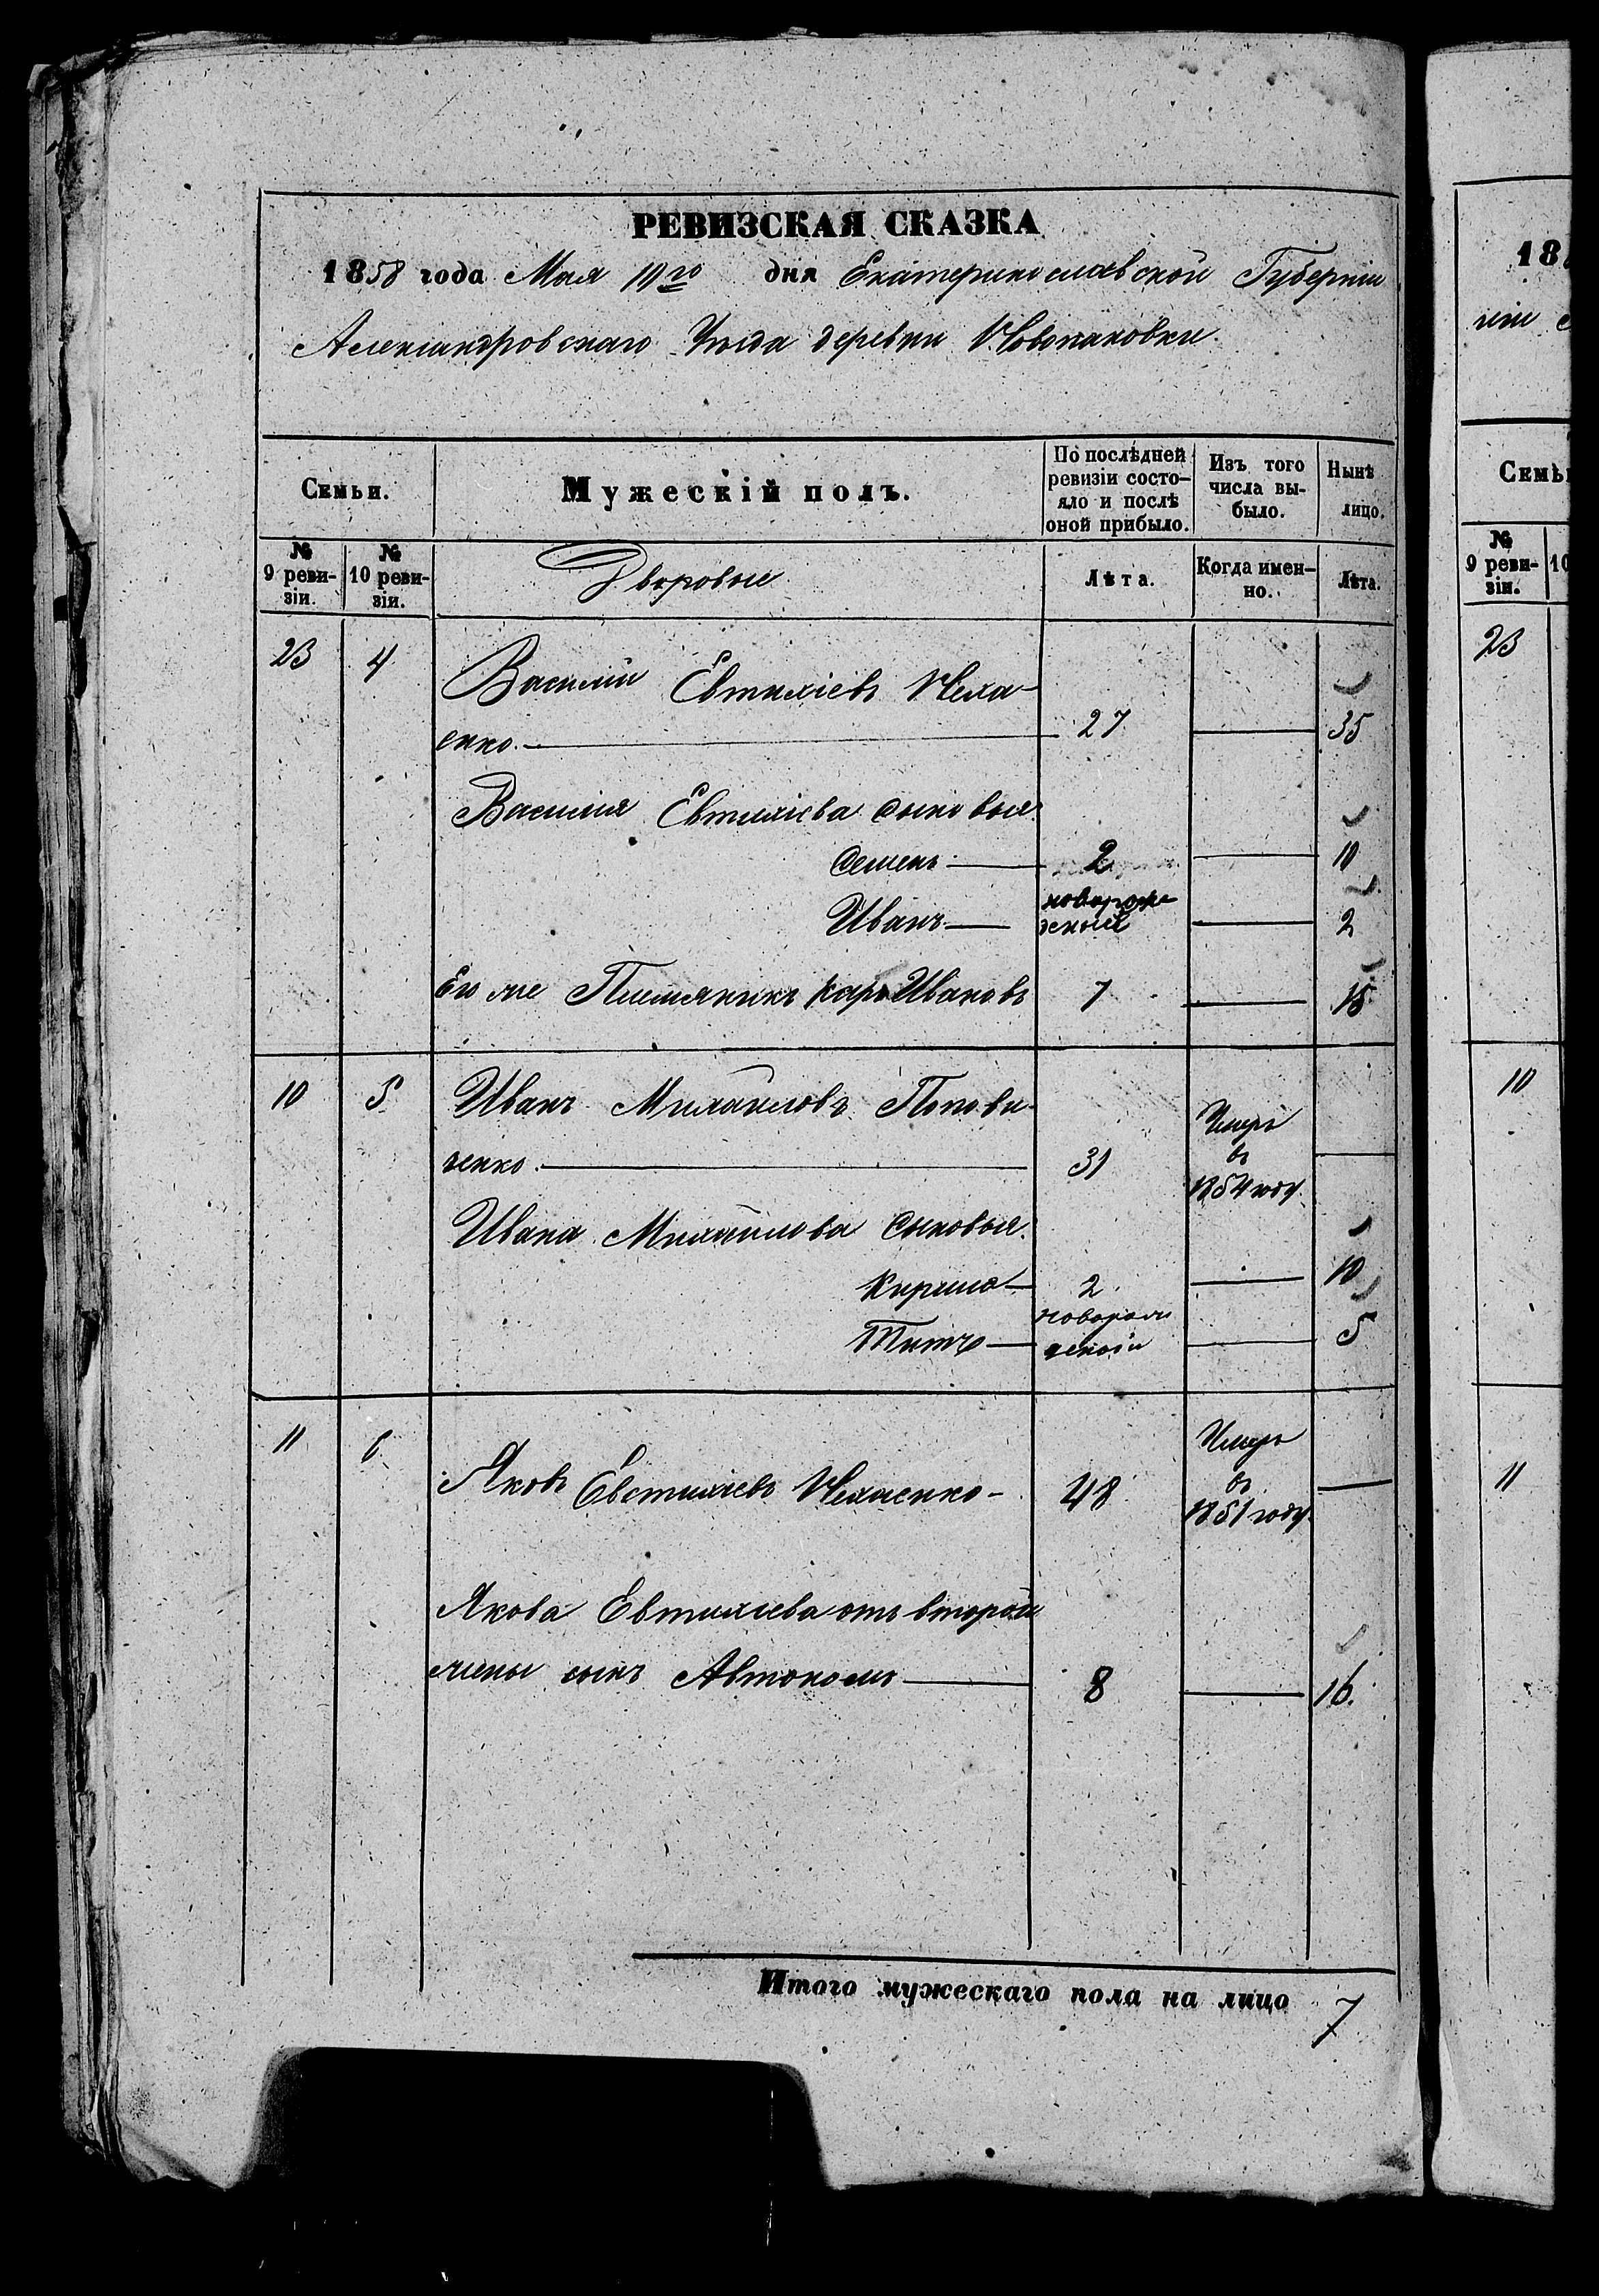 РЕВИЗСКАЯ СКАЗКА
1858 года Мая 10го дня Екатеринославской Губерніи
Александровскаго Уѣзда деревни Новопавловки.
Семьи.
Мужескій полъ.
По послѣдней ревизіи состо-
яло и послѣ оной прибыло.
Изъ того числа вы-
было.
Нынѣ лицо.
№ 9 реви-
зіи.
№ 10 реви-
зіи.
Дворовые
Лѣта.
Когда имен-
но.
Лѣта.
23 4 Василій Евтихіевъ
енко. 27 35
Василія Евтихіева сыновья
Семенъ 2 10
Иванъ новорож-
денный 2
Его же Племяникъ Ивановъ 7 15
10 5 Иванъ Михайловъ Попови-
ченко. 31 Умеръ
въ
1854 году
Ивана Михайлова сыновья.
Кирило 2 10
Титъ новорож
денной 5
11 6 Яковъ Евстихіевъ 48 Умеръ
въ
1851 году
Якова Евтихіева отъ второй
жены сынъ Автономъ 8 16.
Итого мужескаго пола на лицо 7
18
Семьи
№ 9 реви-
зіи.
10
23
10
11